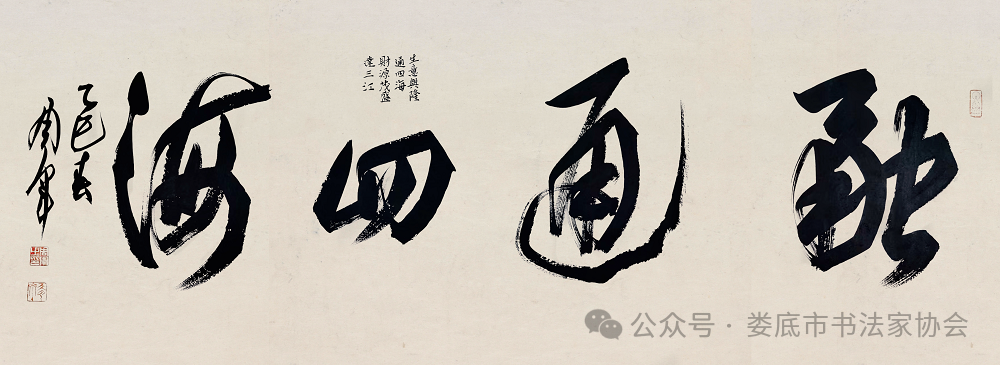 融通四海
生意興隆
通四海
財源茂盛
達三江
乙巳春
公众号 · 娄底市书法家协会